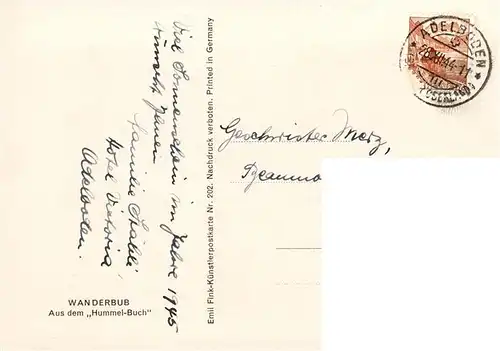 Viel Sonnenschein im Jahre 1945
wünscht Ihnen
Familie Stähli
Hotel Victoria
Adelboden.
WANDERBUB
Aus dem „Hummel-Buch"
Emil Fink-Künstlerpostkarte Nr. 202. Nachdruck verboten. Printed in Germany
ADELBODEN
28.XII.44-11
Geschwister Merz,
Beaumo